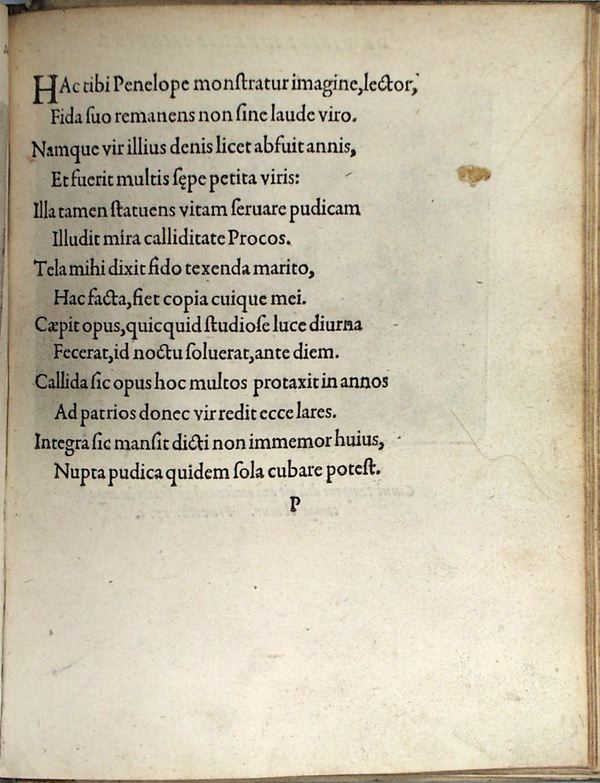 HAc tibi Penelope monſtratur imagine,lector,
Fida ſuo remanens non ſine laude viro.
Namque vir illius denis licet abfuit annis,
Et fuerit multis ſępe petita viris:
Illa tamen ſtatuens vitam ſeruare pudicam
Illudit mira calliditate Procos.
Tela mihi dixit fido texenda marito,
Hac facta,fiet copia cuique mei.
Cæpit opus,quicquid ſtudioſe luce diurna
Fecerat,id noctu ſoluerat,ante diem.
Callida ſic opus hoc multos protaxit in annos
Ad patrios donec vir redit ecce lares.
Integra ſic manſit dicti non immemor huius,
Nupta pudica quidem ſola cubare poteſt.
P